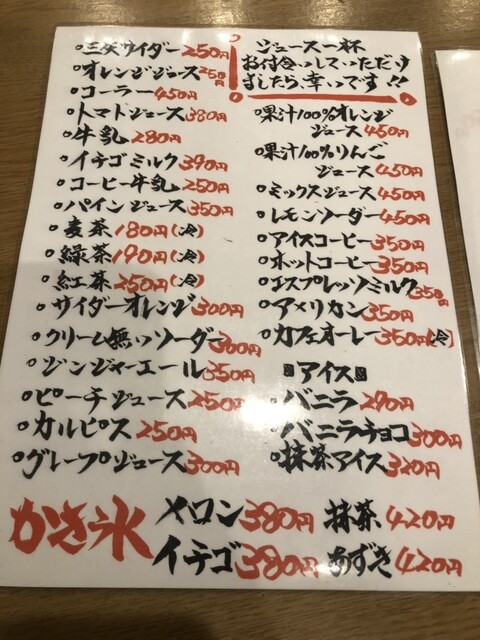 ○三矢サイダー 250円
○オレンジジュース 250円
○コーラー 450円
○トマトジュース 380円
○牛乳 280円
○イチゴミルク 390円
○コーヒー牛乳 250円
○パインジュース 350円
○麦茶 180円(冷)
○緑茶 190円(冷)
○紅茶 250円(冷)
○サイダーオレンジ 300円
○クリーム無ソーダー 300円
○ジンジャーエール 350円
○ピーチジュース 250円
○カルピス 250円
○グレープジュース 300円
ジュース一杯
お付合いしていただけ
ましたら、幸いです!!
○果汁100%オレンジ
ジュース 450円
○果汁100%りんご
ジュース 450円
○ミックスジュース 450円
○レモンソーダー 450円
○アイスコーヒー 350円
○ホットコーヒー 350円
○エスプレッソミルク 350円
○アメリカン 350円
○カフェオーレー 350円(冷)
アイス
・バニラ 290円
・バニラチョコ 300円
・抹茶アイス 320円
かき氷
メロン 380円 抹茶 420円
イチゴ 380円 あずき 420円